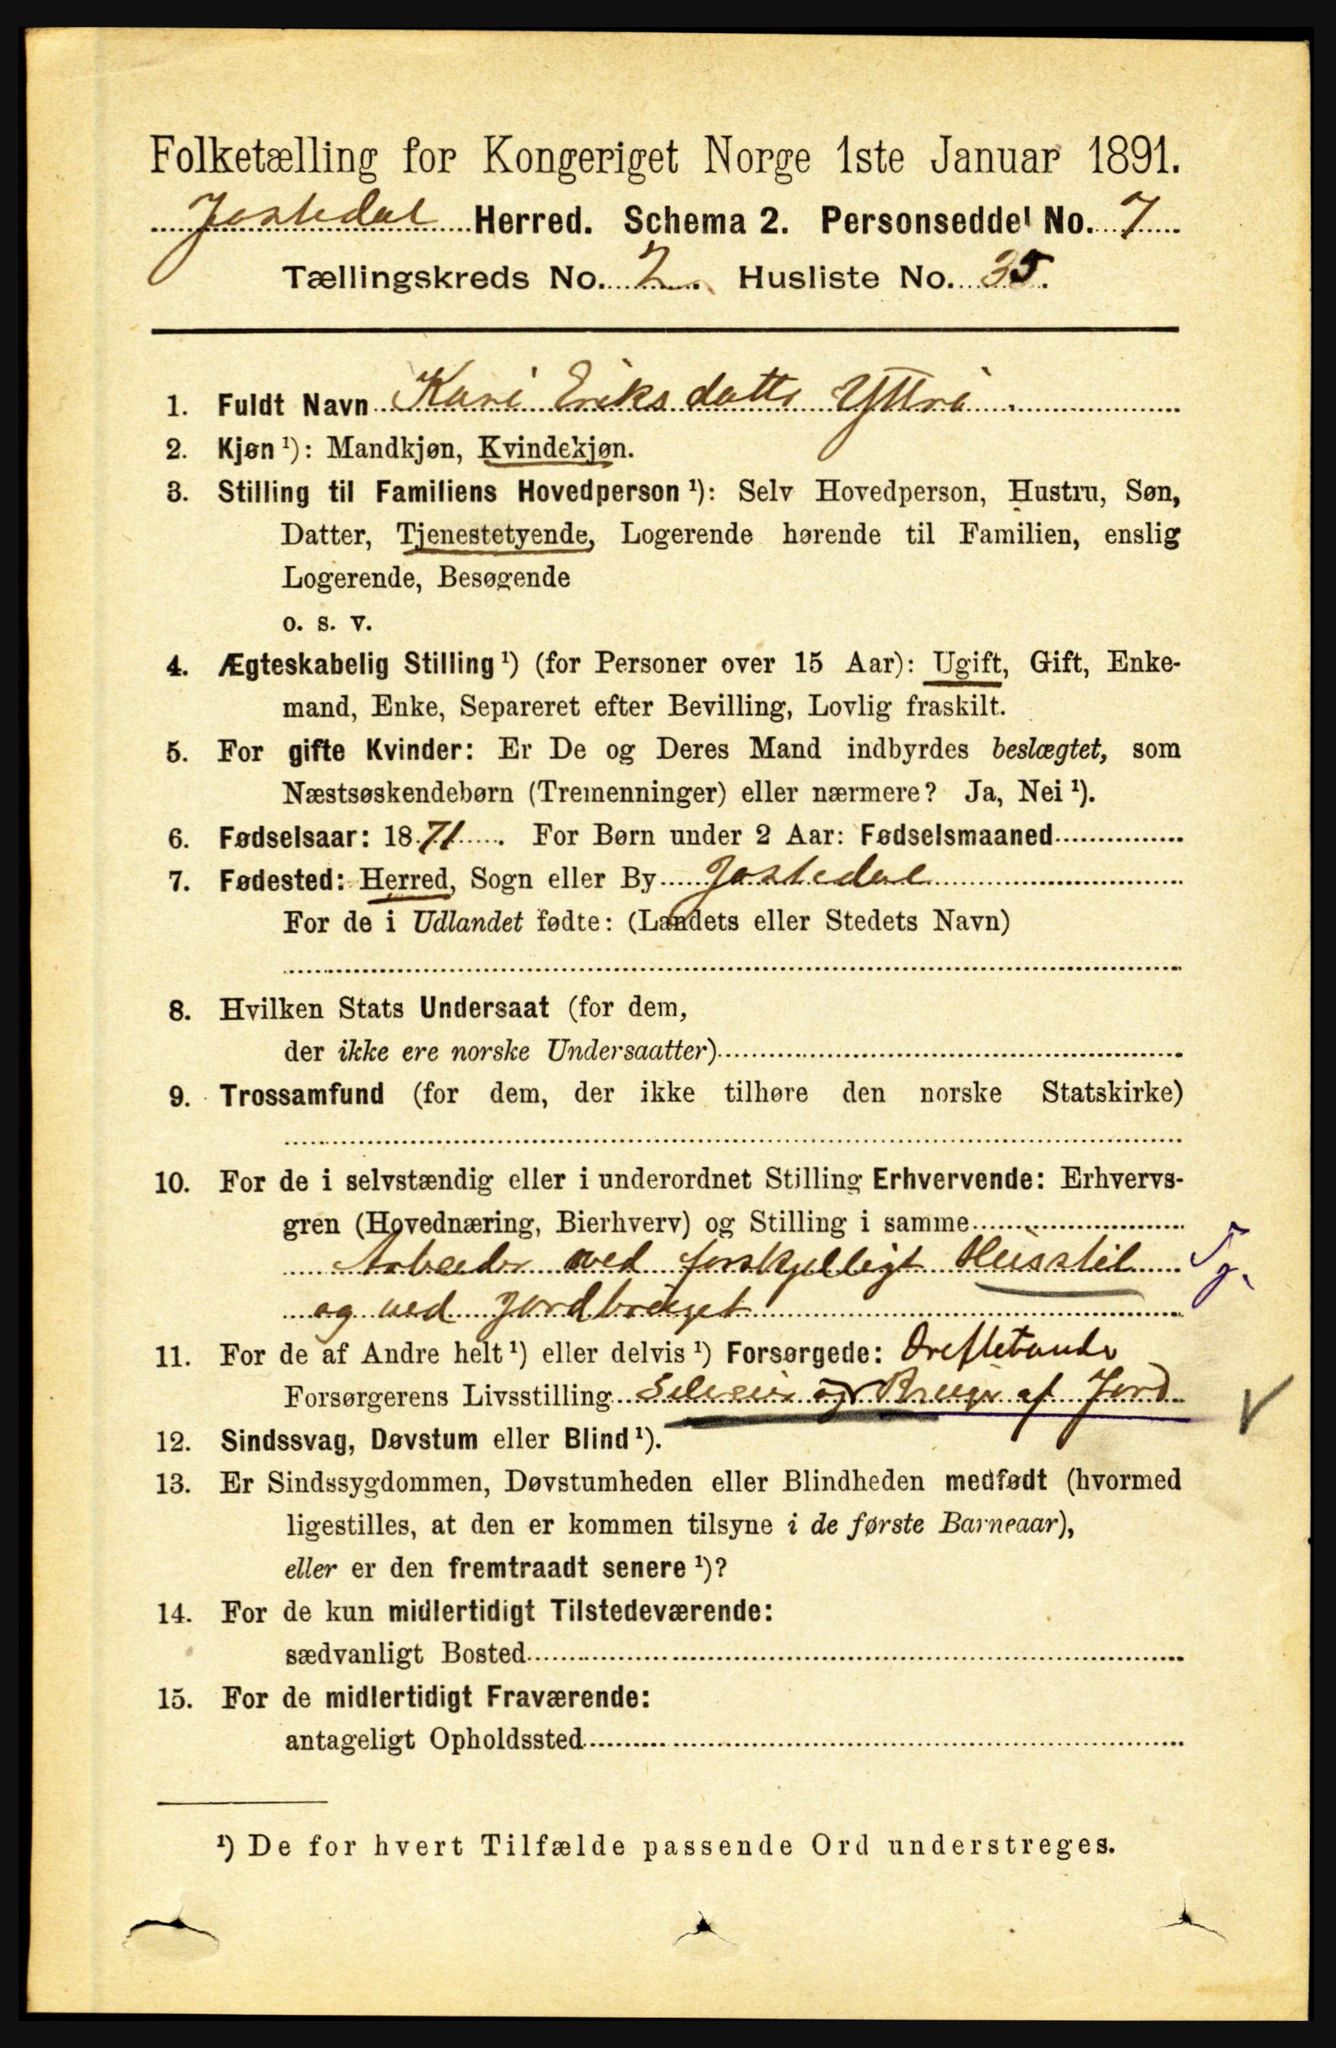 Folketælling for Kongeriget Norge 1ste Januar 1891.
Jostedal Herred. Schema 2. Personseddel No. 7
Tællingskreds No. 2. Husliste No. 35.
1. Fuldt Navn Kari Eriksdatter Yttri
2. Kjøn ¹): Mandkjøn, Kvindekjøn.
3. Stilling til Familiens Hovedperson ¹): Selv Hovedperson, Hustru, Søn,
Datter, Tjenestetyende, Logerende hørende til Familien, enslig
Logerende, Besøgende
o. s. v.
4. Ægteskabelig Stilling ¹) (for Personer over 15 Aar): Ugift, Gift, Enke-
mand, Enke, Separeret efter Bevilling, Lovlig fraskilt.
5. For gifte Kvinder: Er De og Deres Mand indbyrdes beslægtet, som
Næstsøskendebørn (Tremenninger) eller nærmere? Ja, Nei ¹).
6. Fødselsaar: 1871. For Børn under 2 Aar: Fødselsmaaned
7. Fødested: Herred, Sogn eller By Jostedal
For de i Udlandet fødte: (Landets eller Stedets Navn)
8. Hvilken Stats Undersaat (for dem,
der ikke ere norske Undersaatter)
9. Trossamfund (for dem, der ikke tilhøre den norske Statskirke)
10. For de i selvstændig eller i underordnet Stilling Erhvervende: Erhvervs-
gren (Hovednæring, Bierhverv) og Stilling i samme
Arbeider ved forskjelligt Husstel Tj.
og ved Jordbruget
11. For de af Andre helt ¹) eller delvis ¹) Forsørgede:
Forsørgerens Livsstilling Seleier og Bruger af Jord
12. Sindssvag, Døvstum eller Blind ¹).
13. Er Sindssygdommen, Døvstumheden eller Blindheden medfødt (hvormed
ligestilles, at den er kommen tilsyne i de første Barneaar),
eller er den fremtraadt senere ¹)?
14. For de kun midlertidigt Tilstedeværende:
sædvanligt Bosted
15. For de midlertidigt Fraværende:
antageligt Opholdssted
¹) De for hvert Tilfælde passende Ord understreges.